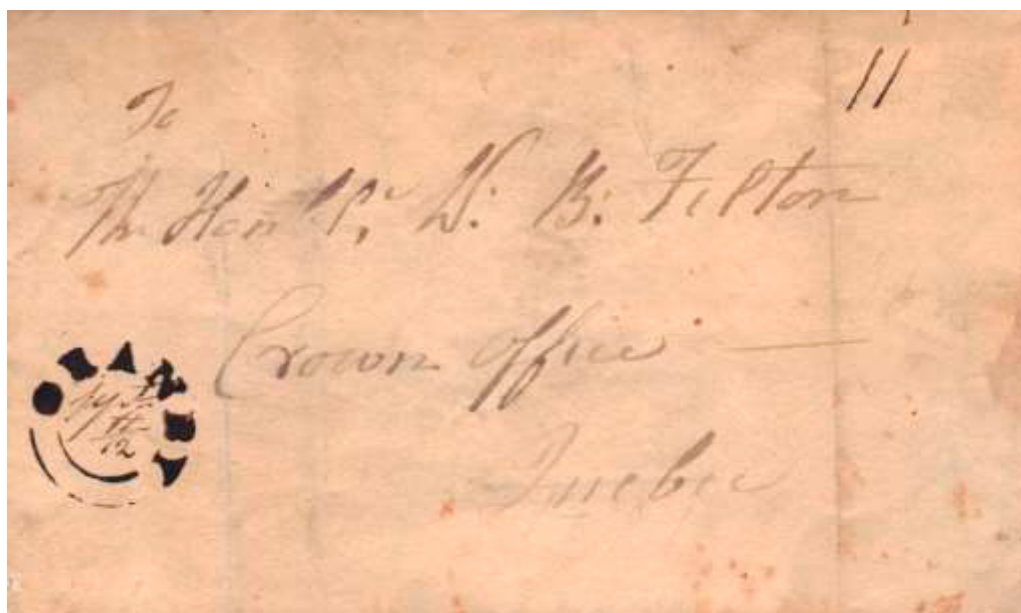 11
To
The Honble. W. B. Felton
Crown Office
Quebec
12